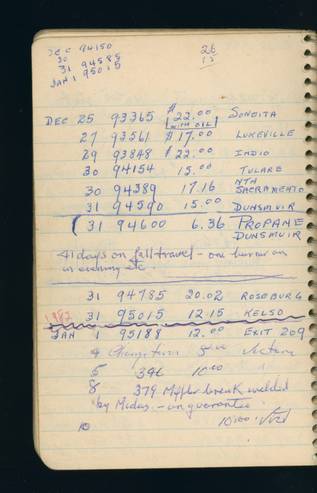 DEC 94150
30
31 94585
JAN 1 95015
26
15
DEC 25 93365 $22.00 SONOITA
WITH OIL
27 93561 $17.00 LUKEVILLE
29 93848 $22.00 INDIO
30 94154 15.00 TULARE
30 94389 17.16 NTH SACRAMENTO
31 94590 15.00 DUNSMUIR
31 94600 6.36 PROPANE
DUNSMUIR
41 days on full travel - one burner on
in evening etc
31 94785 20.02 ROSEBURG
1982 31 95015 12.15 KELSO
JAN 1 95188 12.00 EXIT 209
4
5 396 10.00
8 379 Muffler break welded
by Midas - on guarantee
10 10.00